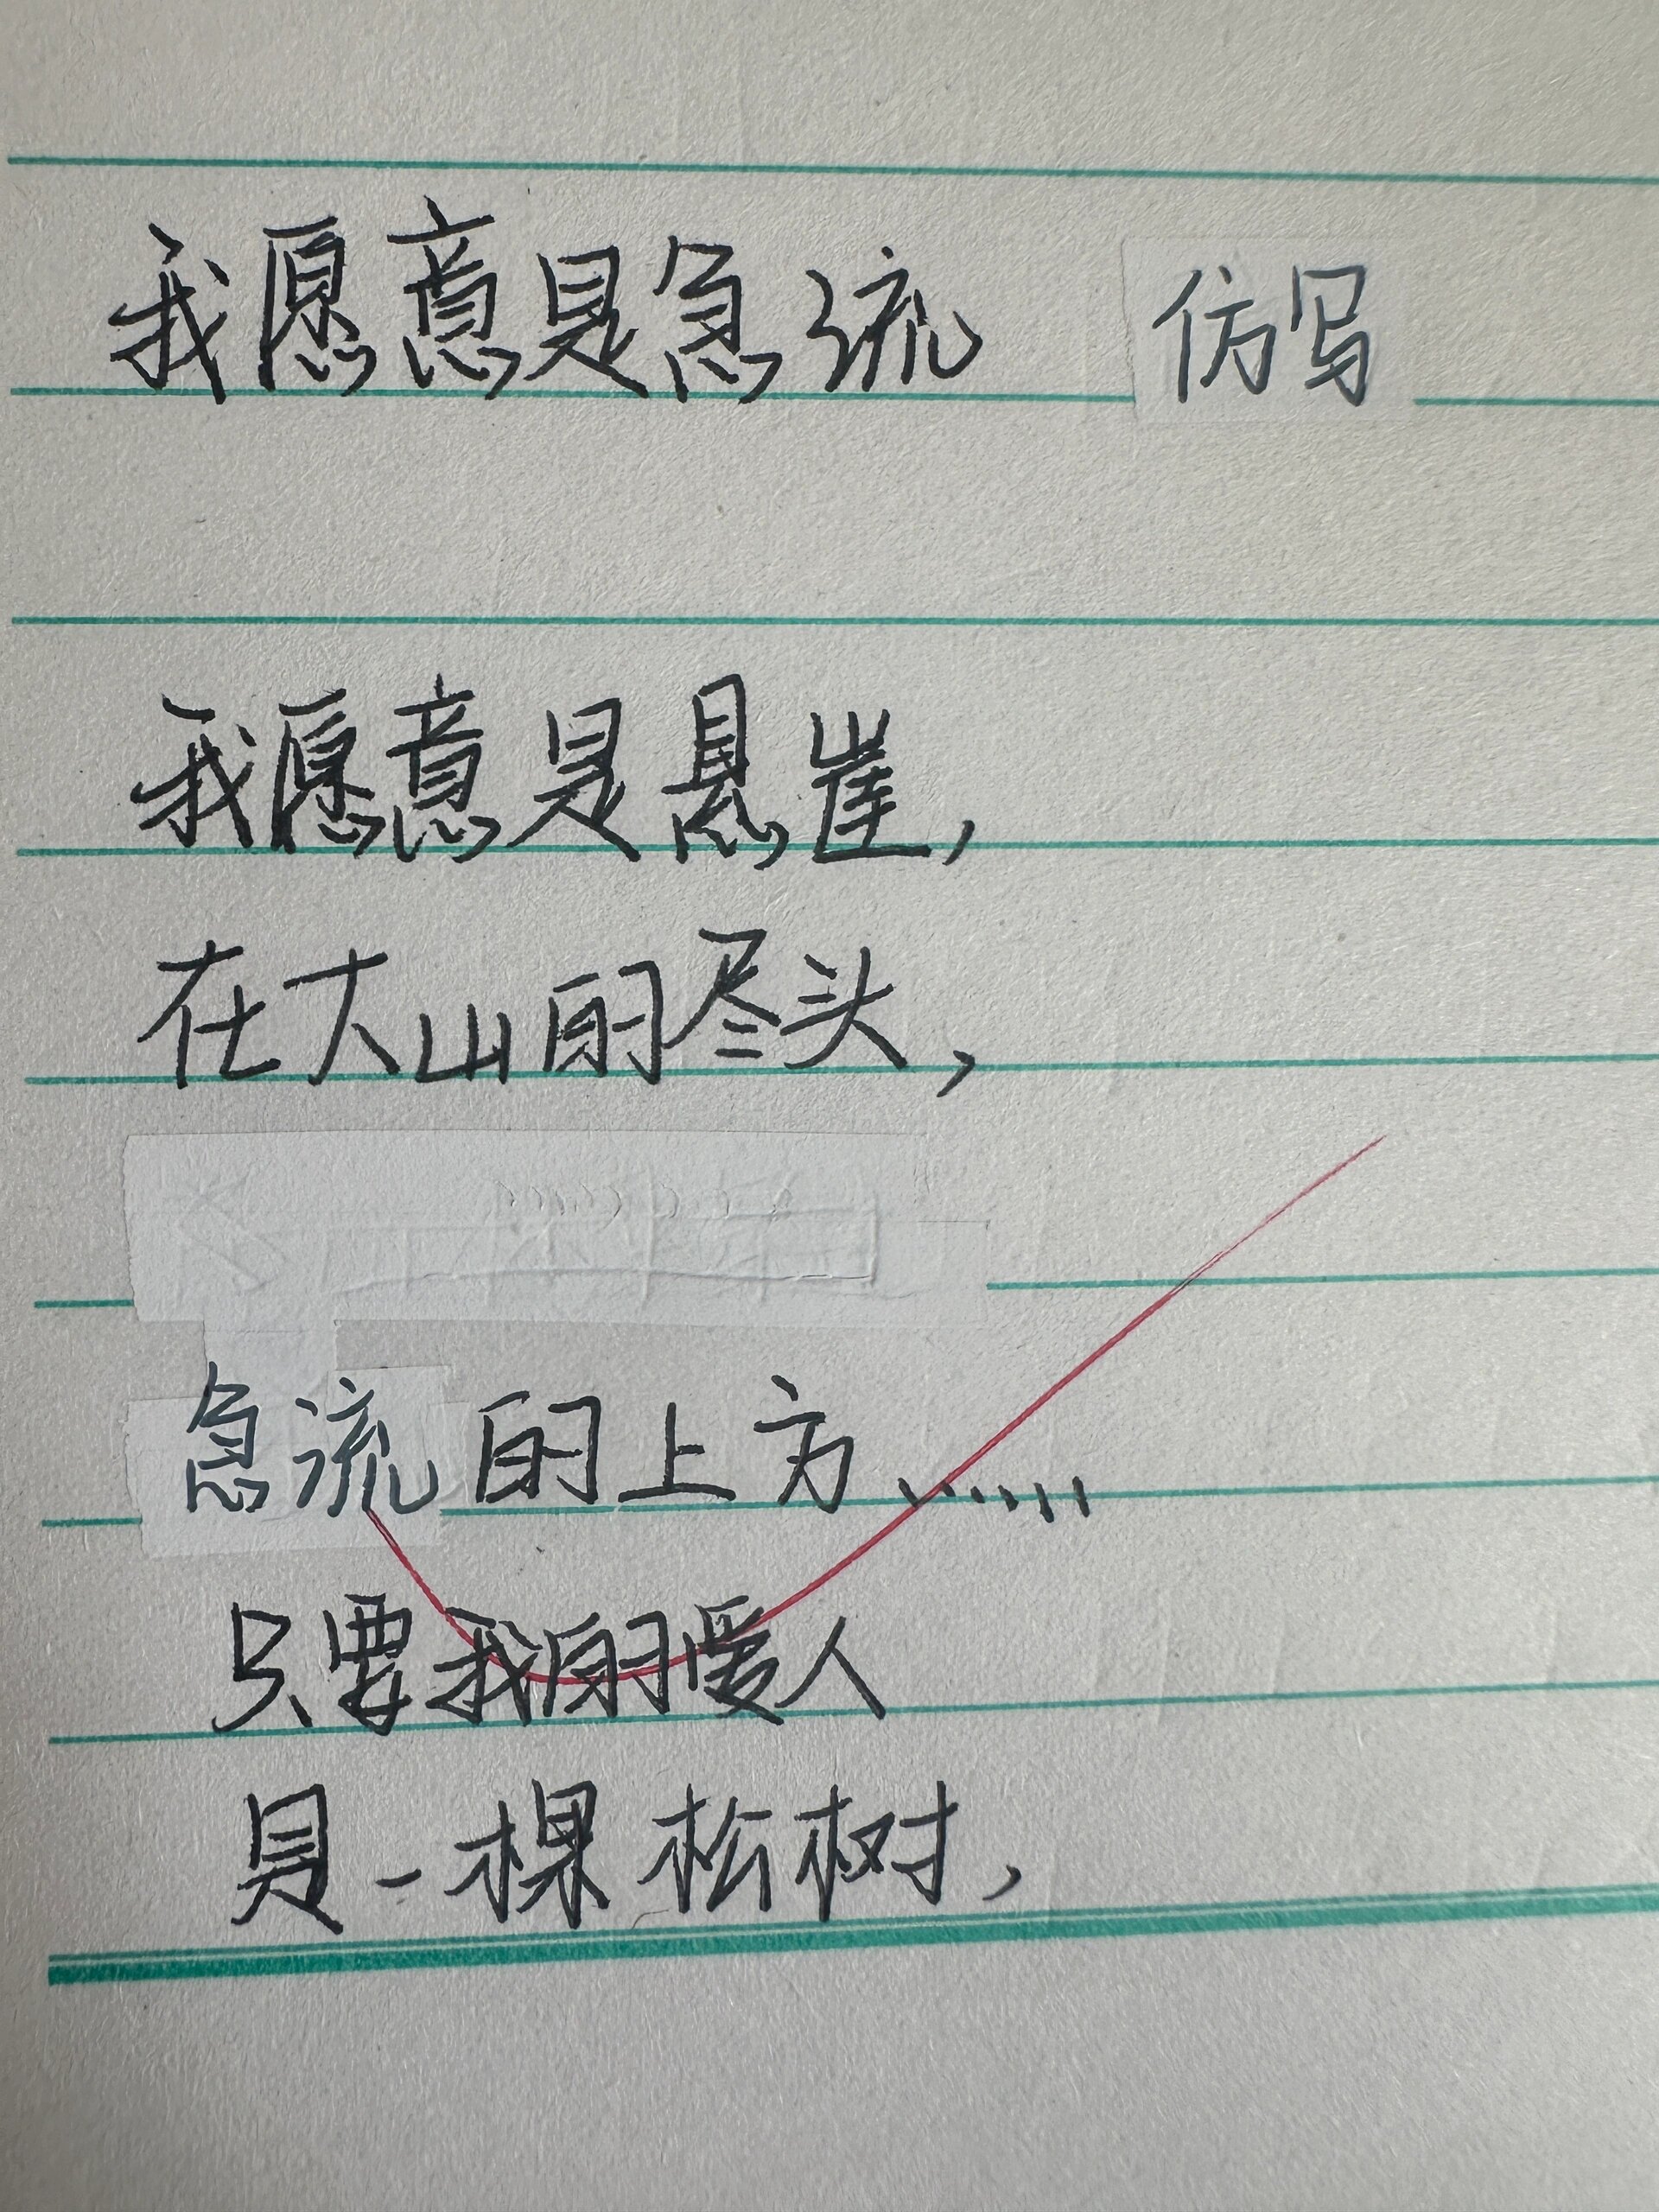 我愿意是急流 仿写
我愿意是悬崖,
在大山的尽头,
急流的上方......
只要我的爱人
是一棵松树,